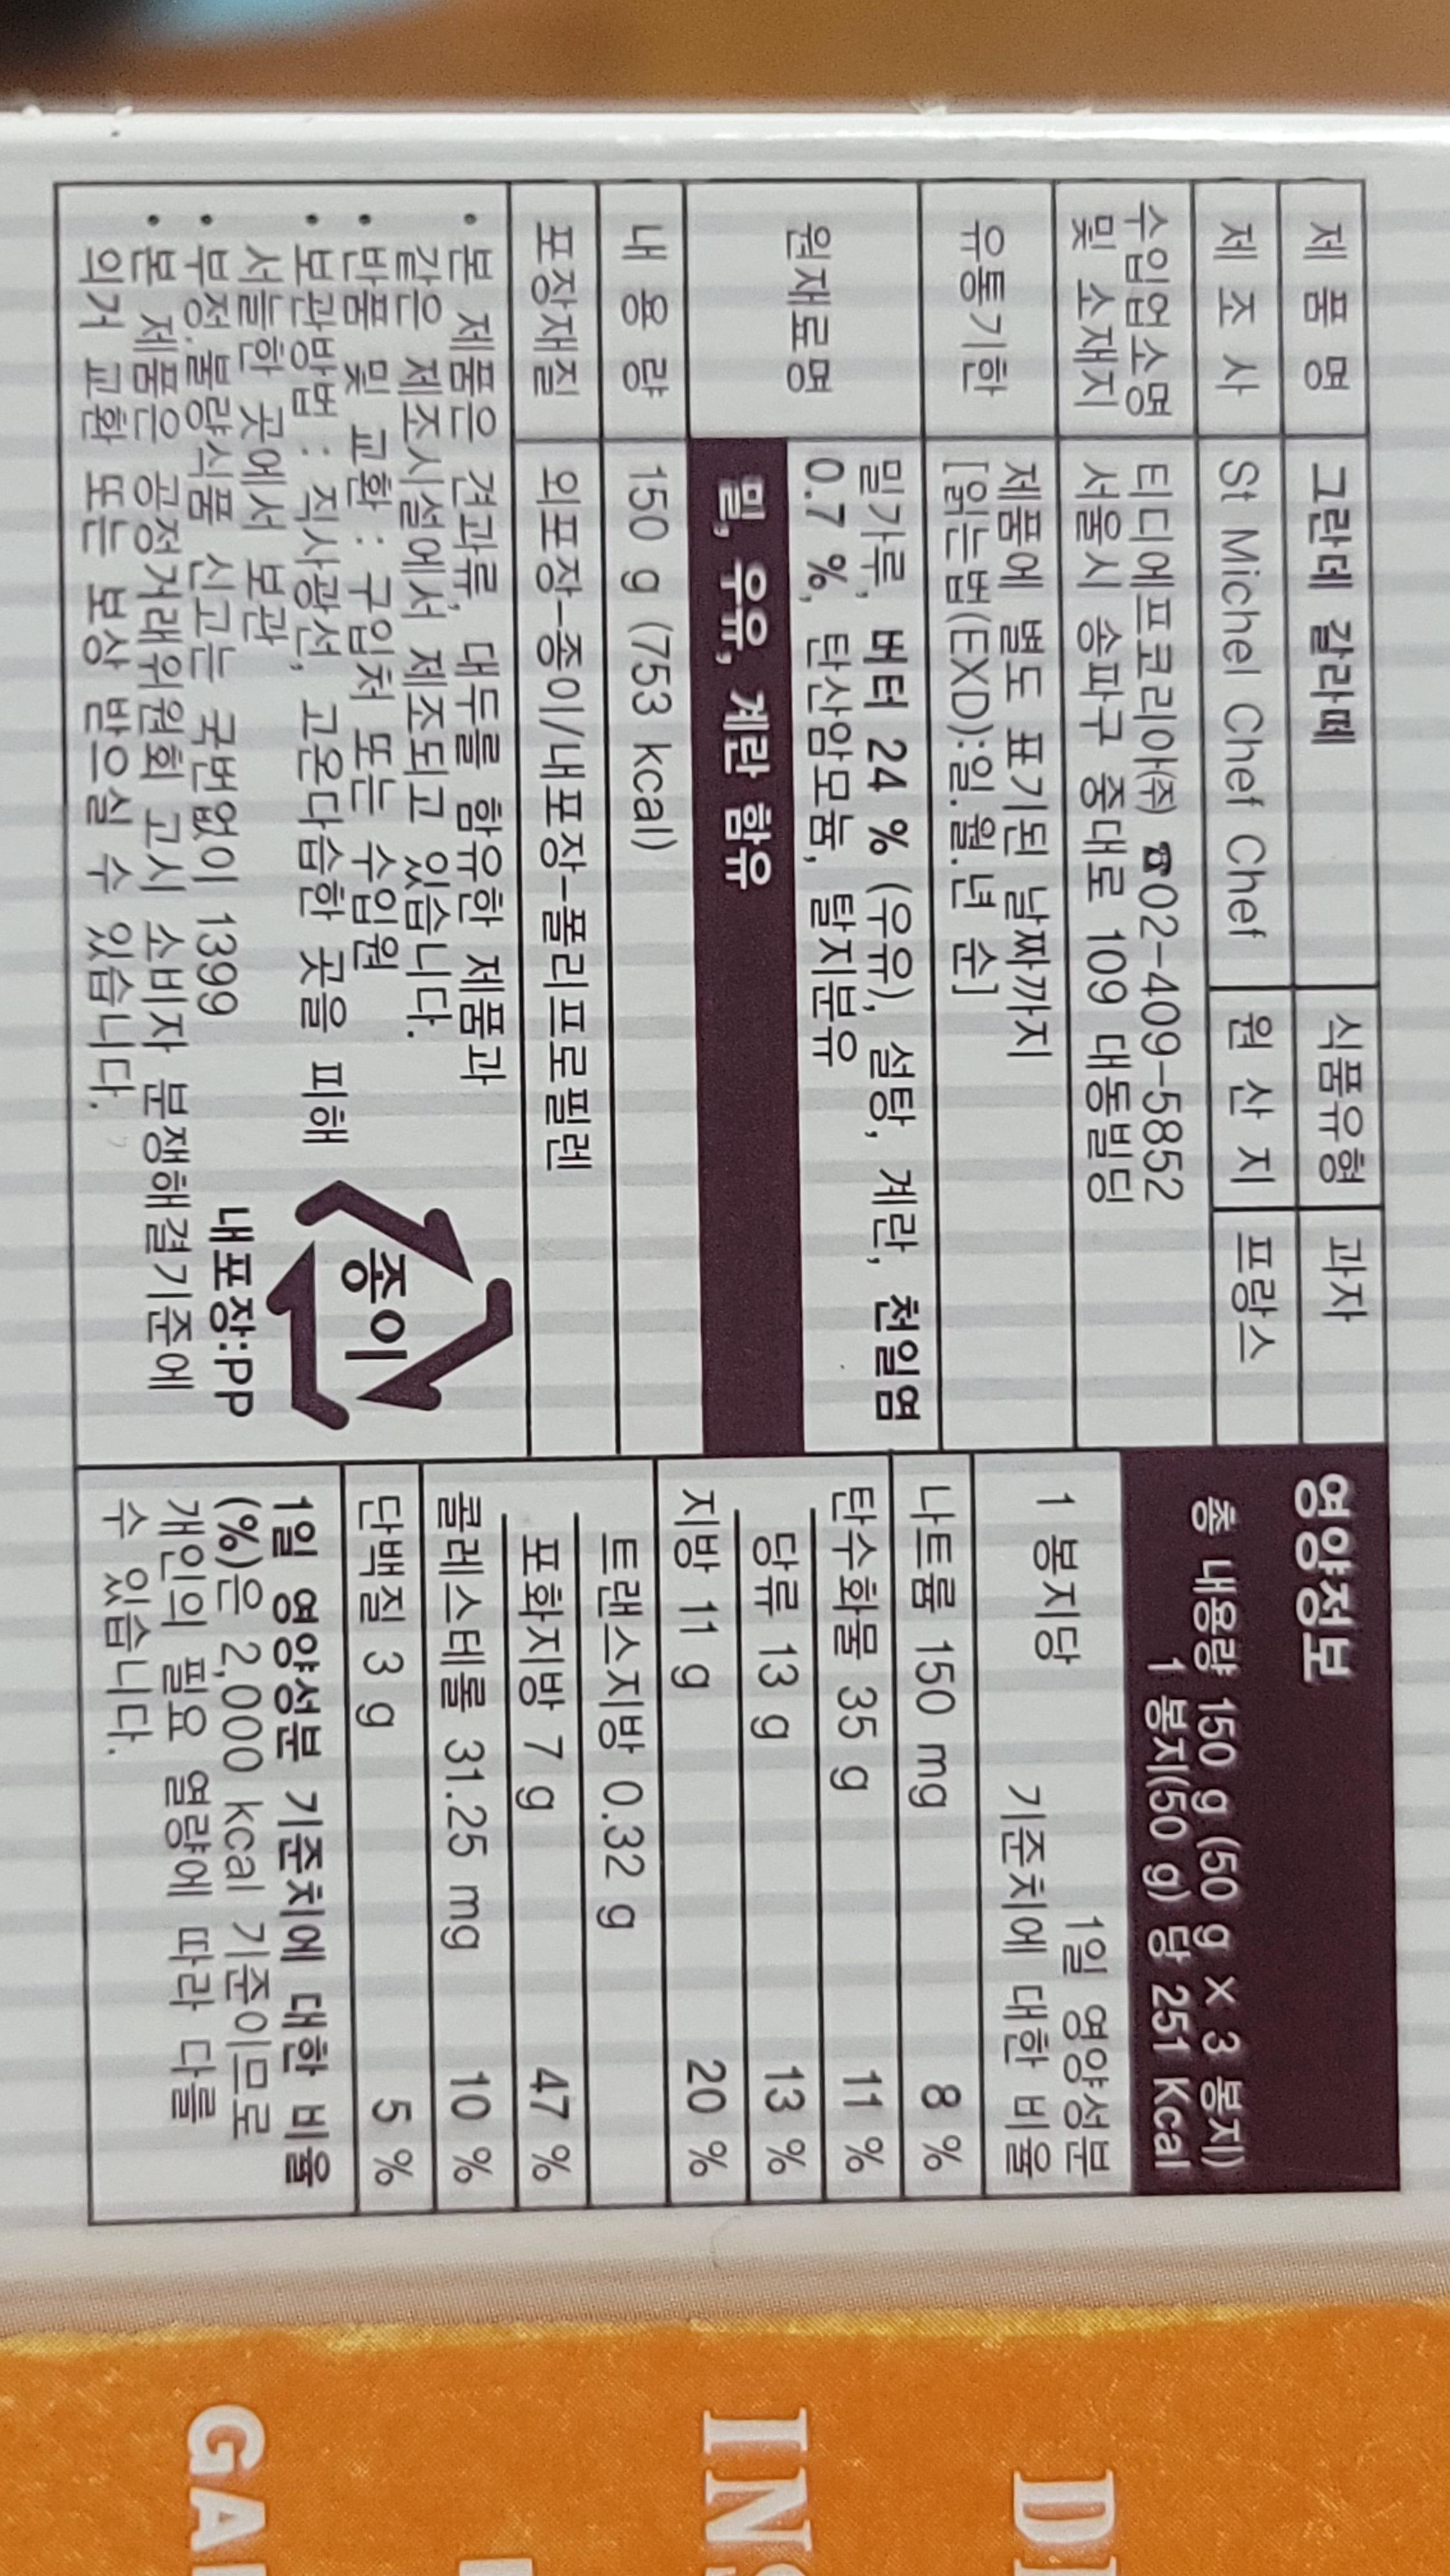 제 품 명 그란데 갈라떼 식품유형 과자
제 조 사 St Michel Chef Chef 원 산 지 프랑스
수입업소명 및 소재지
티디에프코리아(주) ☎02-409-5852
서울시 송파구 중대로 109 대동빌딩
유통기한
제품에 별도 표기된 날짜까지
[읽는법(EXD):일.월.년 순]
원재료명
밀가루, 버터 24 % (우유), 설탕, 계란, 천일염
0.7 %, 탄산암모늄, 탈지분유
밀, 우유, 계란 함유
내 용 량 150 g (753 kcal)
포장재질 외포장-종이/내포장-폴리프로필렌
• 본 제품은 견과류, 대두를 함유한 제품과
같은 제조시설에서 제조되고 있습니다.
• 반품 및 교환 : 구입처 또는 수입원
• 보관방법 : 직사광선, 고온다습한 곳을 피해
서늘한 곳에서 보관
• 부정.불량식품 신고는 국번없이 1399
• 본 제품은 공정거래위원회 고시 소비자 분쟁해결기준에
의거 교환 또는 보상 받으실 수 있습니다.
종이
내포장:PP
영양정보
총 내용량 150 g (50 g × 3 봉지)
1 봉지(50 g) 당 251 Kcal
1 봉지당
1일 영양성분
기준치에 대한 비율
나트륨 150 mg 8 %
탄수화물 35 g 11 %
당류 13 g 13 %
지방 11 g 20 %
트랜스지방 0.32 g
포화지방 7 g 47 %
콜레스테롤 31.25 mg 10 %
단백질 3 g 5 %
1일 영양성분 기준치에 대한 비율
(%)은 2,000 kcal 기준이므로
개인의 필요 열량에 따라 다를
수 있습니다.